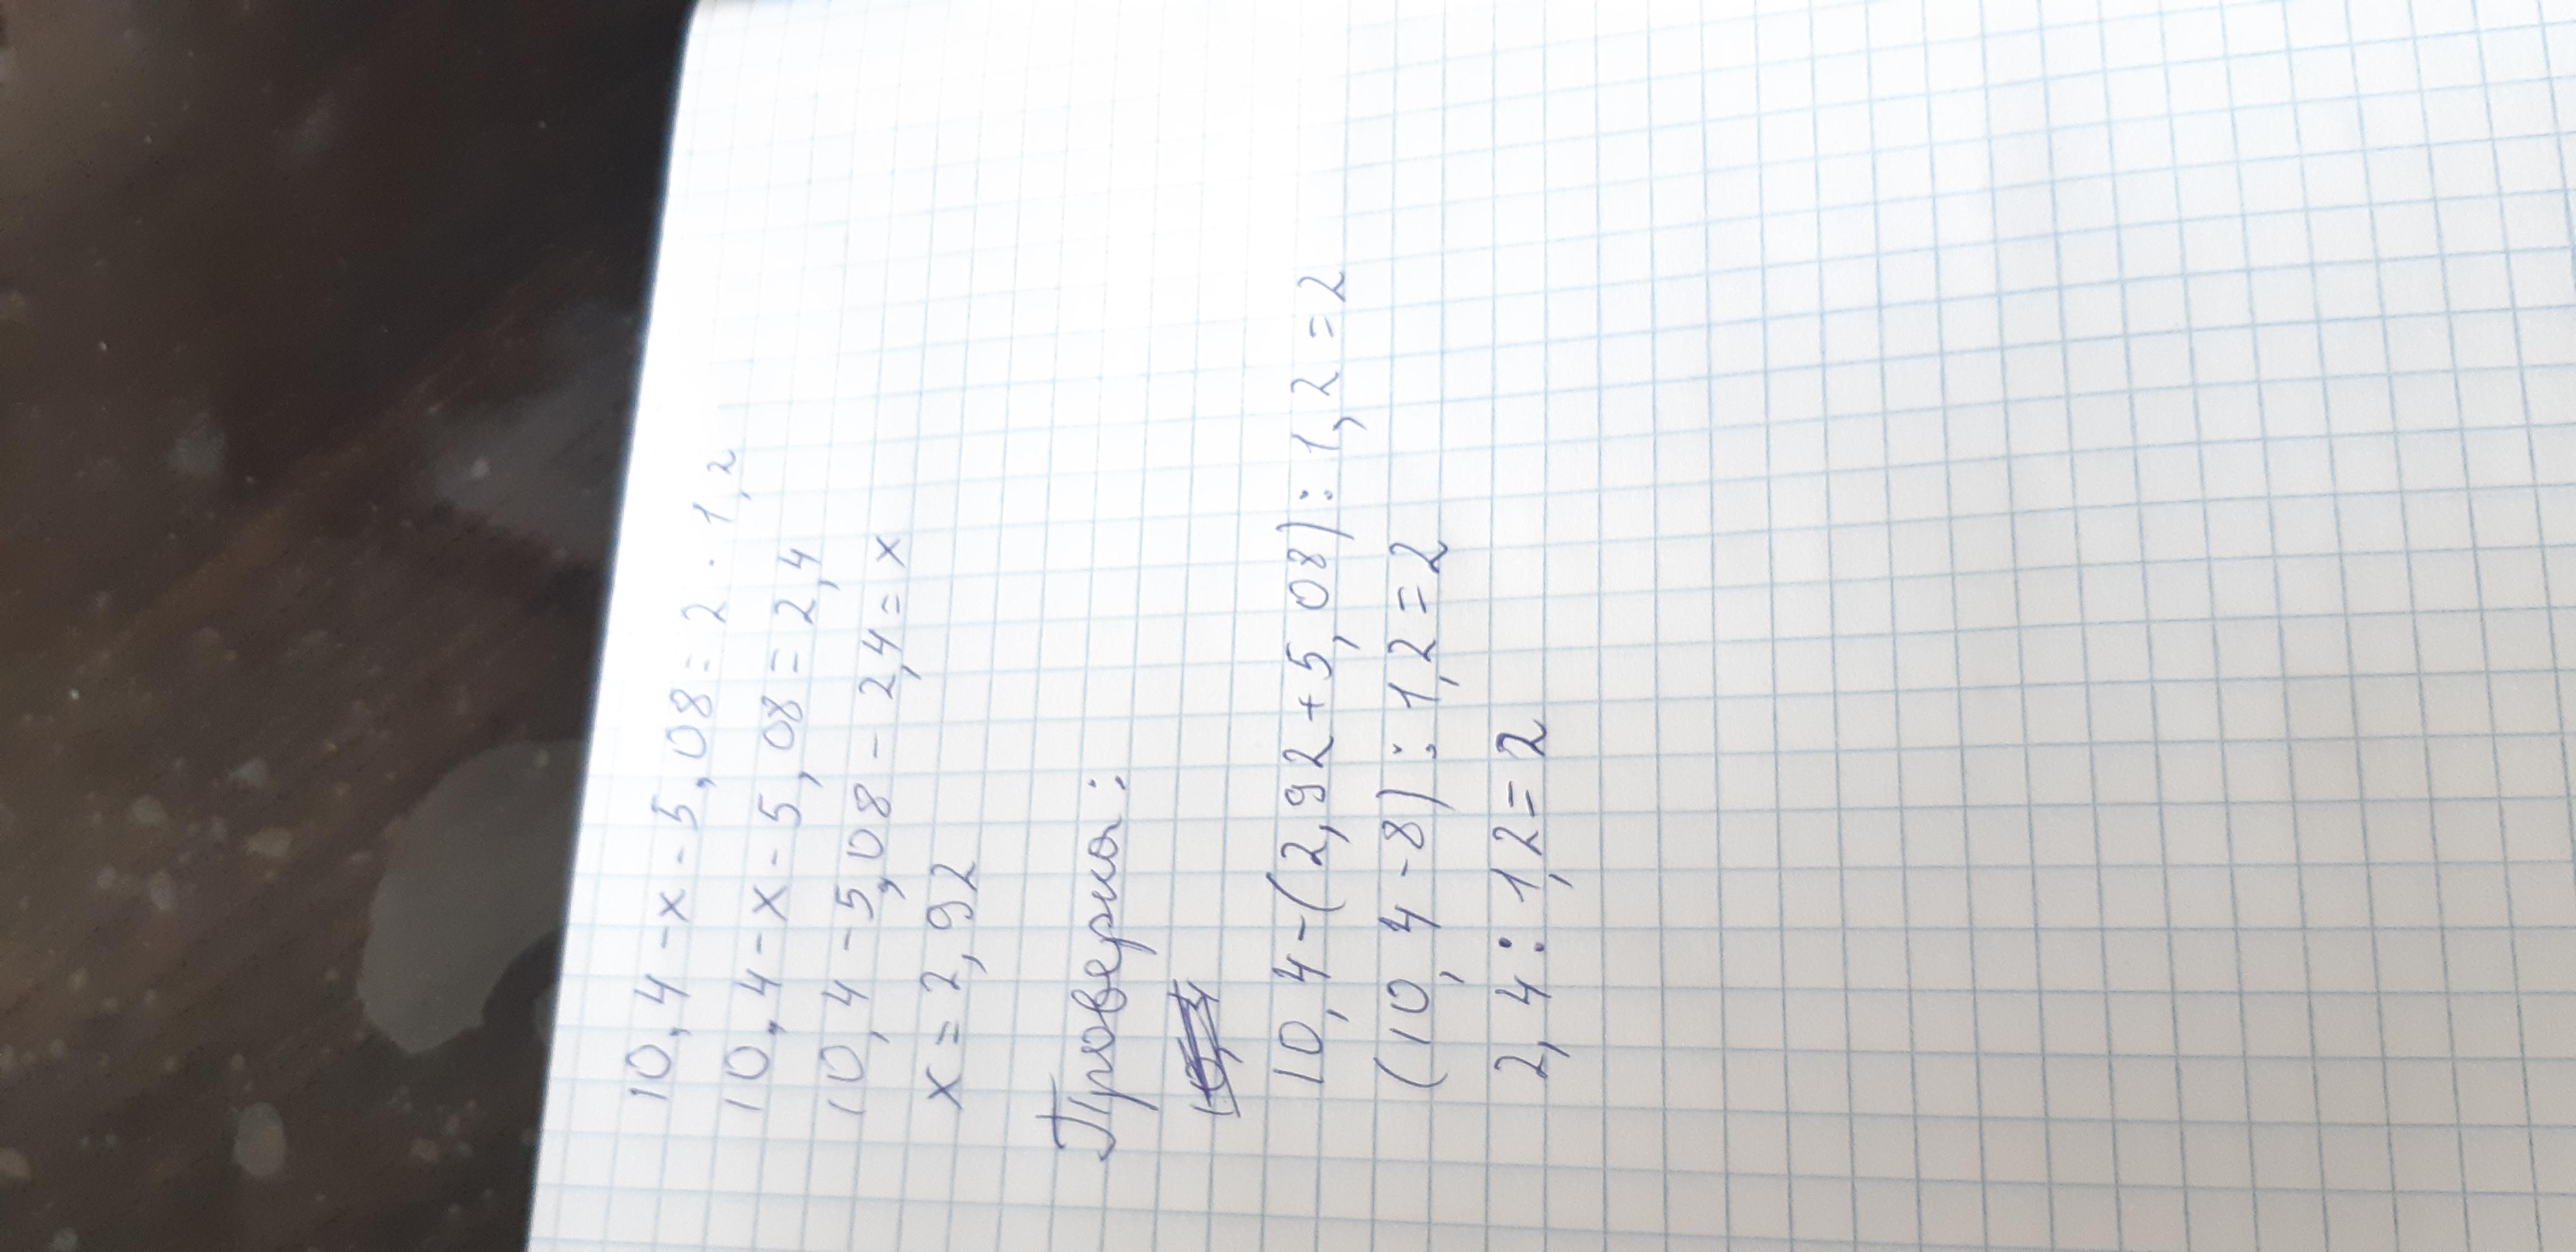 10,4-x-5,08=2·1,2
10,4-x-5,08=2,4
10,4-5,08-2,4=x
x=2,92
Проверка:
10,4-(2,92+5,08):1,2=2
(10,4-8):1,2=2
2,4:1,2=2